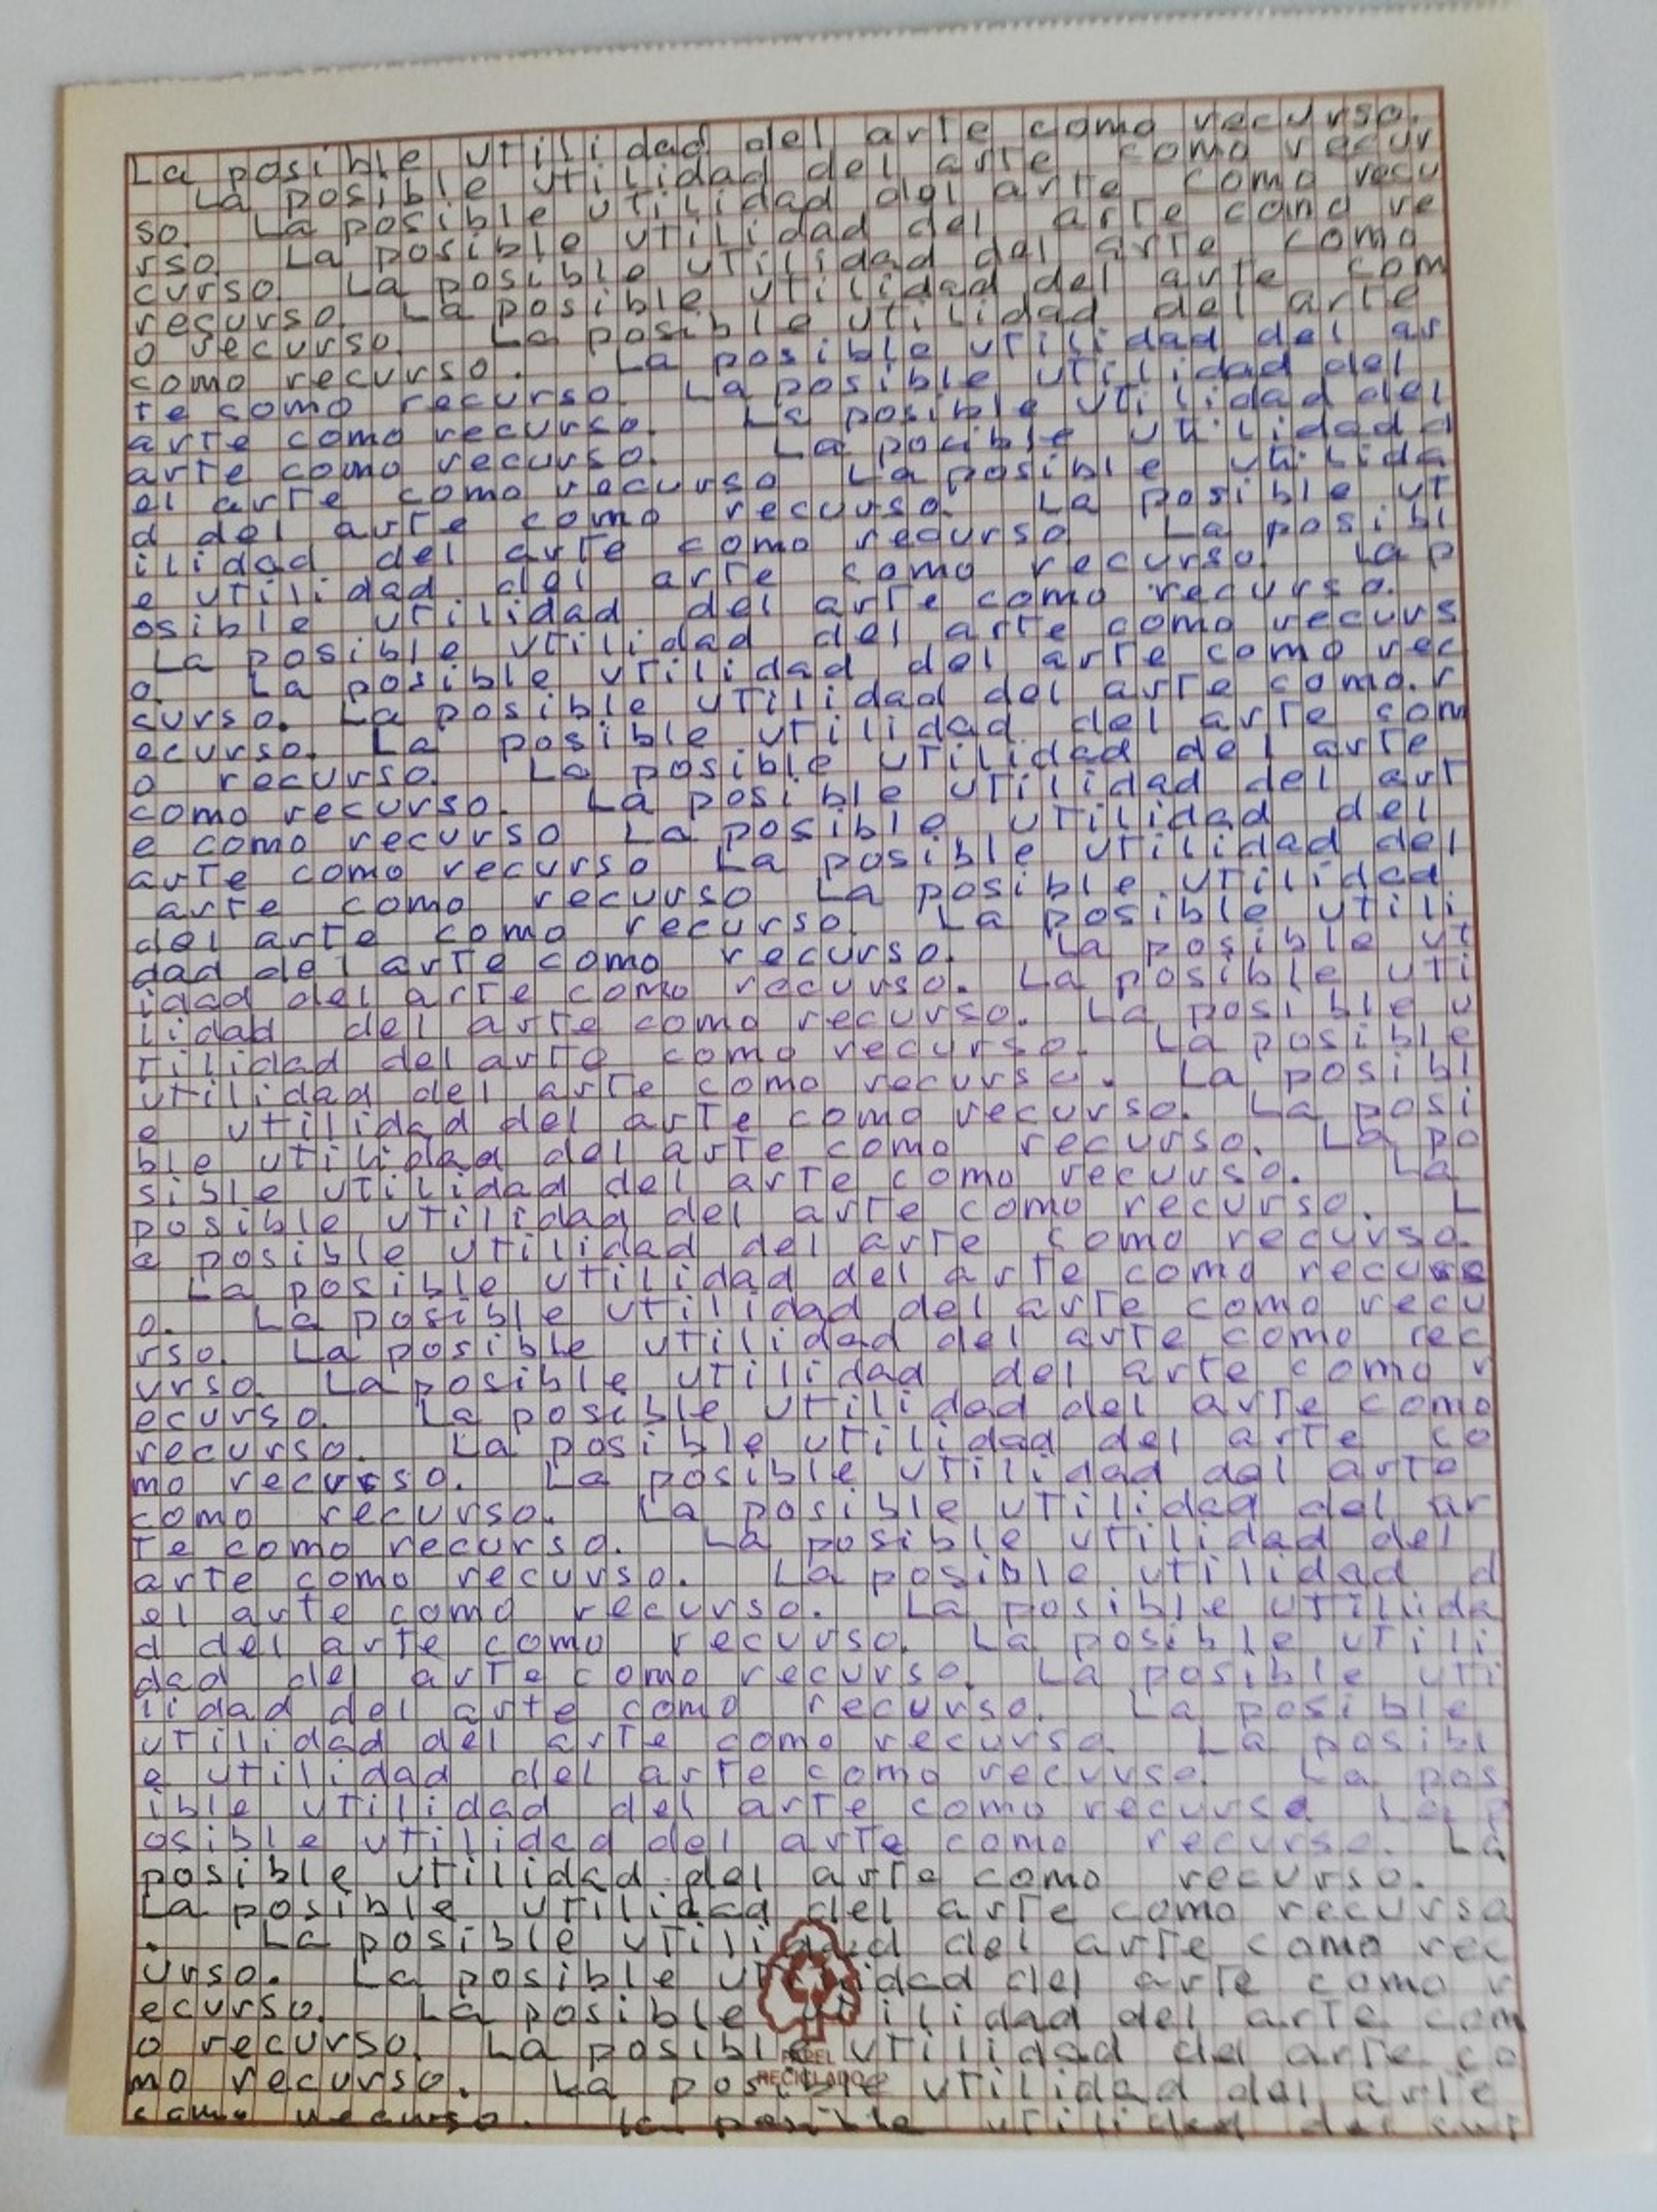 La posible utilidad del arte como recurso.
La posible utilidad del arte como recur
so. La posible utilidad del arte como recu
rso. La posible utilidad del arte como re
curso. La posible utilidad del arte como
recurso. La posible utilidad del arte com
o recurso. La posible utilidad del arte
como recurso. La posible utilidad del ar
te como recurso. La posible utilidad del
arte como recurso. La posible utilidad del
arte como recurso. La posible utilidad d
el arte como recurso La posible utilida
d del arte como recurso. La posible ut
ilidad del arte como recurso La posibl
e utilidad del arte como recurso. La p
osible utilidad del arte como recurso.
La posible utilidad del arte como recurs
o. La posible utilidad del arte como rec
curso. La posible utilidad del arte como r
ecurso. La posible utilidad del arte com
o recurso. La posible utilidad del arte
como recurso. La posible utilidad del art
e como recurso La posible utilidad del
arte como recurso La posible utilidad del
arte como recurso La posible utilidad
del arte como recurso. La posible utili
dad del arte como recurso. La posible ut
idad del arte como recurso. La posible uti
lidad del arte como recurso. La posible u
tilidad del arte como recurso. La posible
utilidad del arte como recurso. La posibl
e utilidad del arte como recurso. La posi
ble utilidad del arte como recurso. La po
sible utilidad del arte como recurso. La
posible utilidad del arte como recurso. L
a posible utilidad del arte como recurso.
La posible utilidad del arte como recurs
o. La posible utilidad del arte como recu
rso. La posible utilidad del arte como rec
urso. La posible utilidad del arte como r
ecurso. La posible utilidad del arte como
recurso. La posible utilidad del arte co
mo recurso. La posible utilidad del arte
como recurso. La posible utilidad del ar
te como recurso. La posible utilidad del
arte como recurso. La posible utilidad d
el arte como recurso. La posible utilida
d del arte como recurso. La posible utili
dad del arte como recurso. La posible uti
lidad del arte como recurso. La posible
utilidad del arte como recurso. La posibl
e utilidad del arte como recurso. La pos
ible utilidad del arte como recurso La p
osible utilidad del arte como recurso. La
posible utilidad del arte como recurso.
La posible utilidad del arte como recurso
. La posible utilidad del arte como rec
urso. La posible utilidad del arte como r
ecurso. La posible utilidad del arte com
o recurso. La posible utilidad del arte co
mo recurso. La posible utilidad del arte
como recurso. la posible utilidad del art
PAPEL
RECICLADO